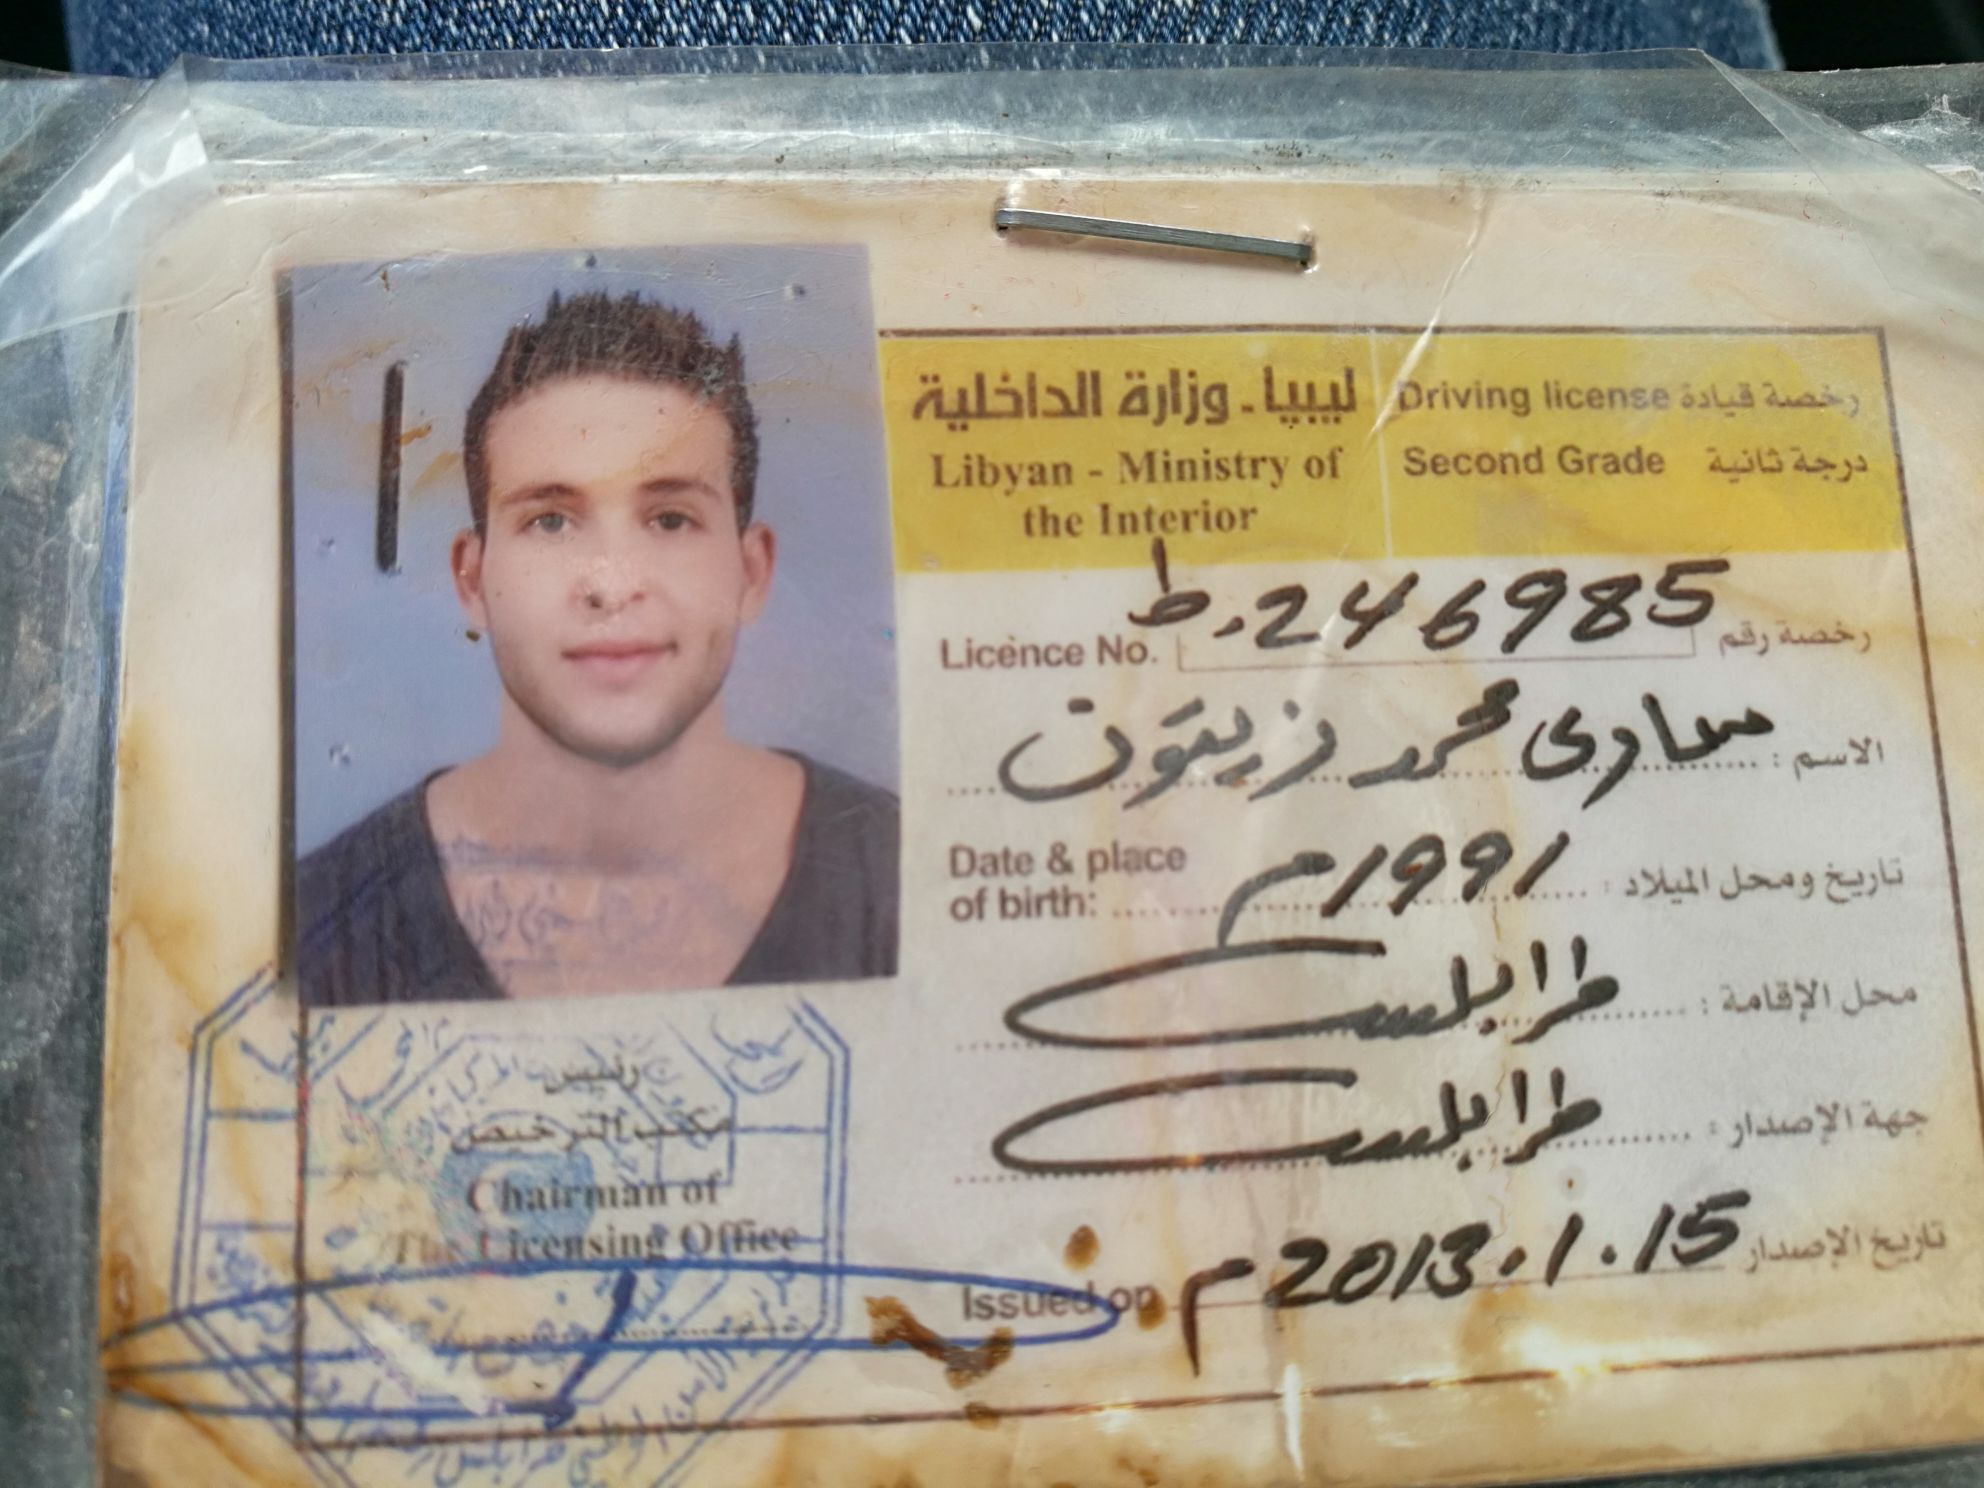 ليبيا - وزارة الداخلية
Libyan - Ministry of
the Interior
Driving license رخصة قيادة
Second Grade درجة ثانية
Licence No. ط.246985 رخصة رقم
الاسم : ساري محمد زيتون
Date & place
of birth: 1991م تاريخ ومحل الميلاد :
محل الإقامة : طرابلس
جهة الإصدار : طرابلس
Issued on 2013.1.15م تاريخ الإصدار
رئيس
مكتب الترخيص
Chairman of
The Licensing Office